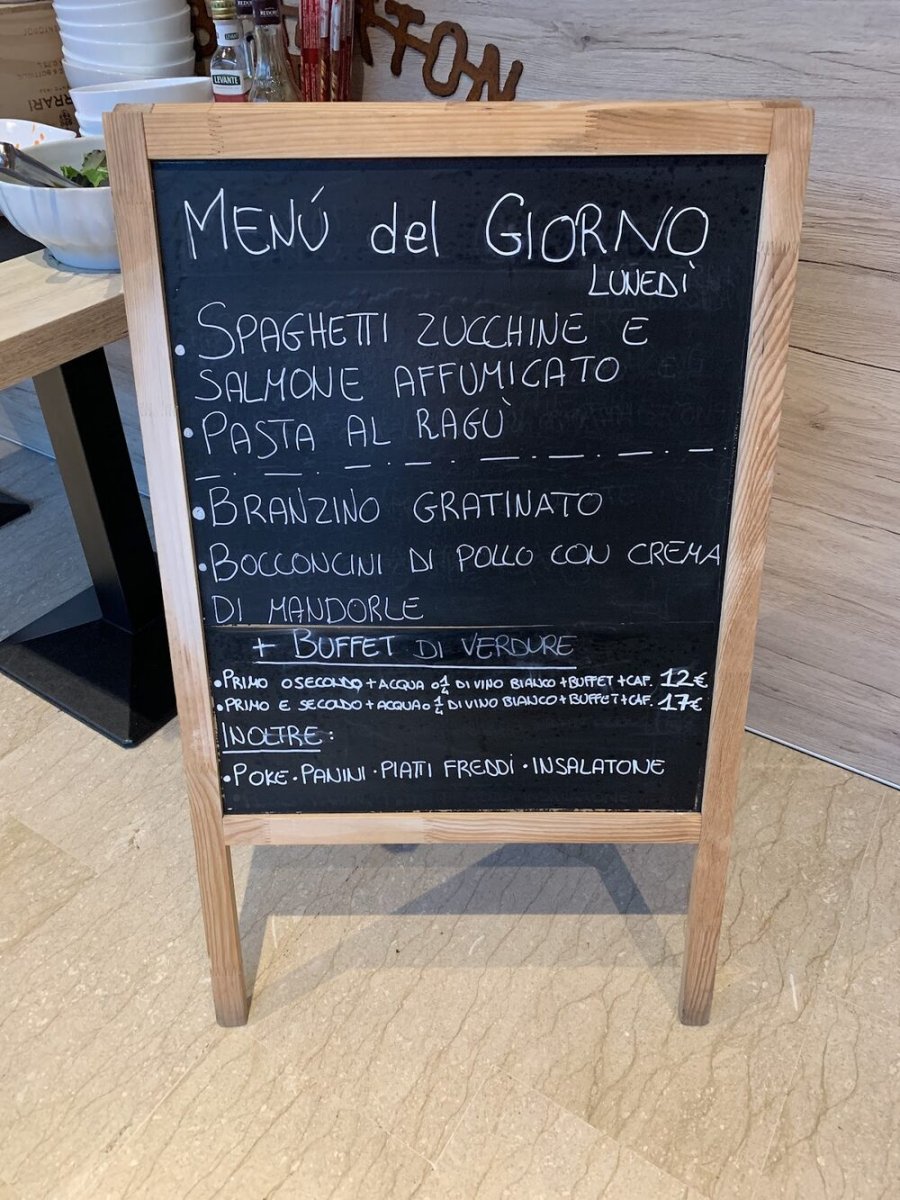 LEVANTE
TON
RRARI
MENÚ del GIORNO
LUNEDÌ
• SPAGHETTI ZUCCHINE E
SALMONE AFFUMICATO
• PASTA AL RAGÙ
• BRANZINO GRATINATO
• BOCCONCINI DI POLLO CON CREMA
DI MANDORLE
+ BUFFET DI VERDURE
• PRIMO O SECONDO + ACQUA O 1/4 DI VINO BIANCO + BUFFET + CAF. 12€
• PRIMO E SECONDO + ACQUA O 1/4 DI VINO BIANCO + BUFFET + CAF. 17€
INOLTRE:
• POKE • PANINI • PIATTI FREDDI • INSALATONE